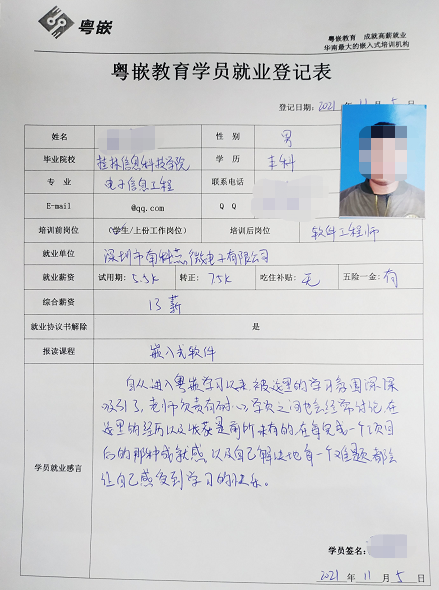 粤嵌
粤嵌教育 成就高薪就业
华南最大的嵌入式培训机构
粤嵌教育学员就业登记表
登记日期：2021 年 11 月 5 日
姓名 性别 男
毕业院校 桂林信息科技学院 学历 本科
专业 电子信息工程 联系电话
E-mail @qq.com Q Q
培训前岗位 （学生/上份工作岗位） 培训后岗位 软件工程师
就业单位 深圳市南科芯微电子有限公司
就业薪资 试用期：5.5k 转正：7.5k 吃住补贴：无 五险一金：有
综合薪资 13薪
就业协议书解除 是
报读课程 嵌入式软件
学员就业感言
自从进入粤嵌学习以来，被这里的学习氛围深深
吸引了，老师负责有耐心，学员之间也会经常讨论，在
这里的经历以及收获是前所未有的，在每完成一个项目
后的那种成就感，以及自己解决每一个难题都会
让自己感受到学习的快乐。
学员签名：
2021 年 11 月 5 日